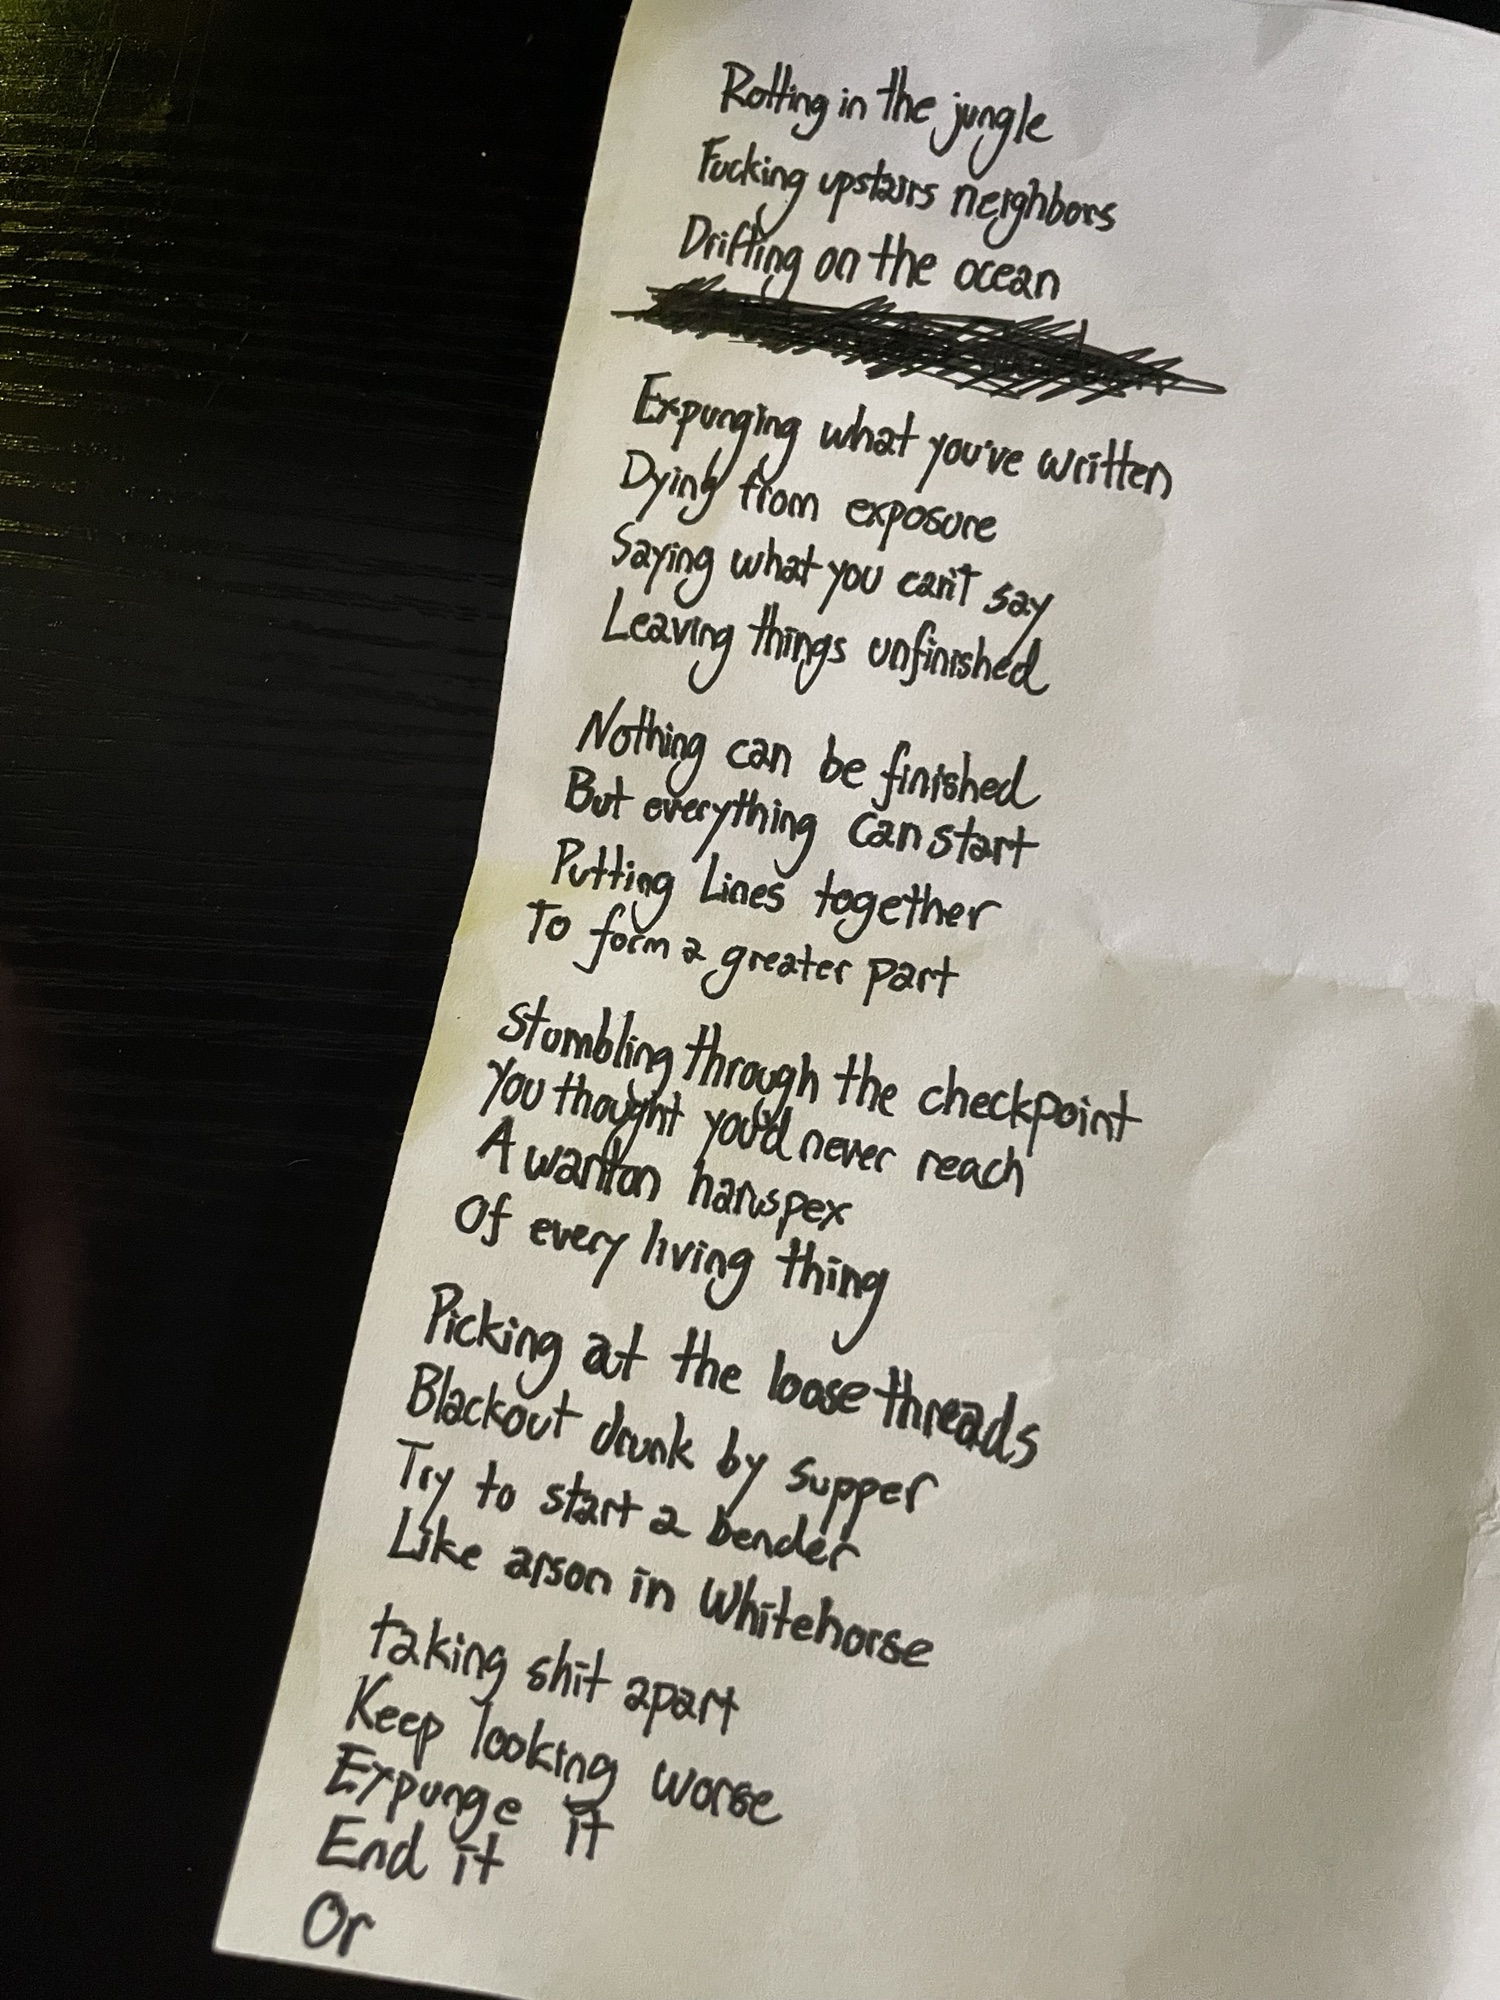 Rotting in the jungle
Fucking upstairs neighbors
Drifting on the ocean
Expunging what you've written
Dying from exposure
Saying what you can't say
Leaving things unfinished
Nothing can be finished
But everything can start
Putting Lines together
To form a greater part
Stumbling through the checkpoint
You thought you'd never reach
A wanton haruspex
Of every living thing
Picking at the loose threads
Blackout drunk by supper
Try to start a bender
Like arson in Whitehorse
taking shit apart
Keep looking worse
Expunge it
End it
Or